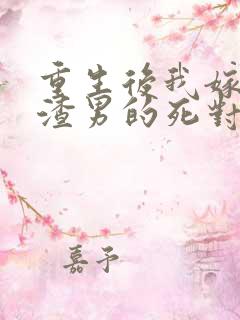 重生後我嫁
渣男的死對
嘉予